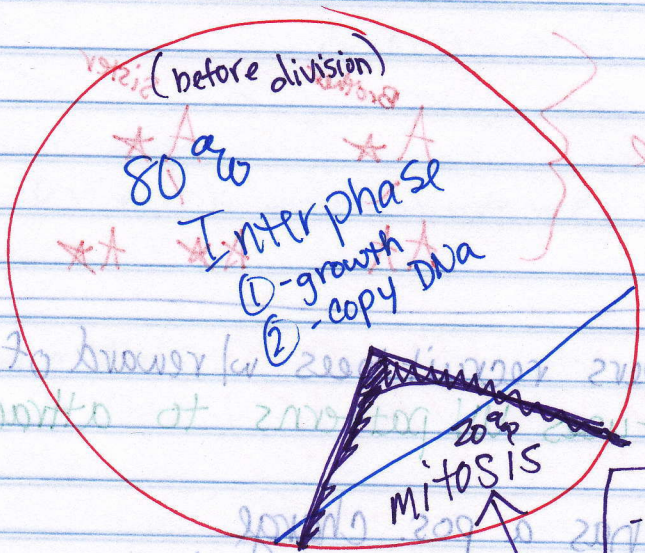 (before division)
80%
Interphase
① -growth
② -copy DNA
20%
mitosis